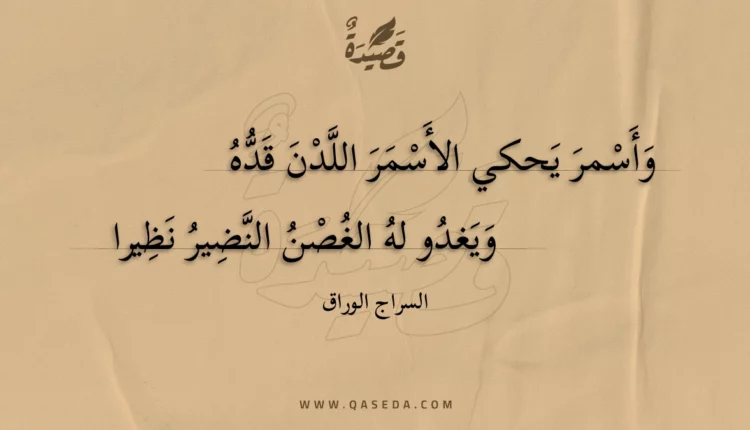 قَصِيْدَةٌ
وَأَسْمرَ يَحكي الأَسْمَرَ اللَّدْنَ قَدُّهُ
وَيَغدُو لهُ الغُصْنُ النَّضِيرُ نَظِيرا
السراج الوراق
WWW.QASEDA.COM